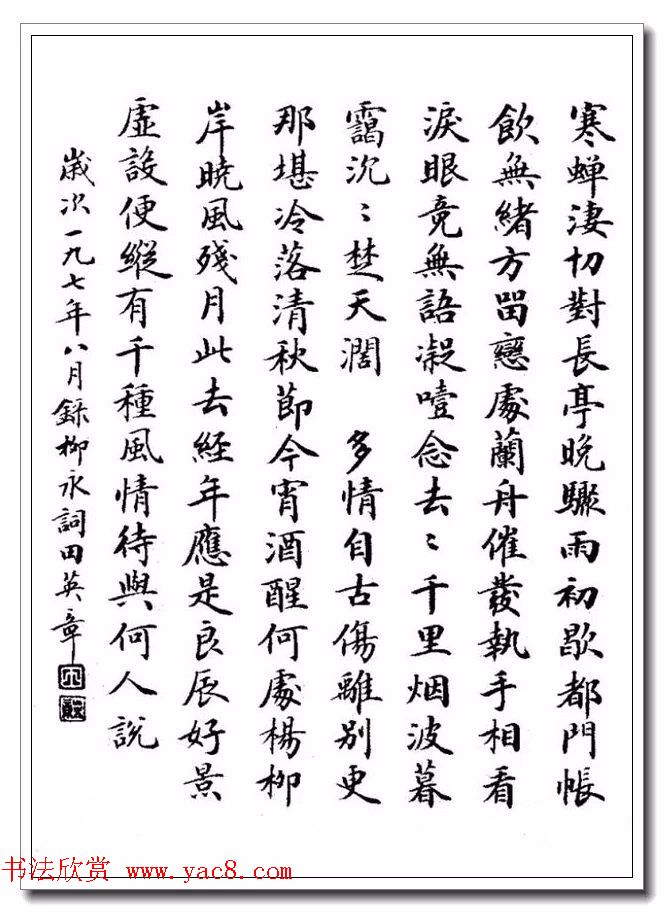 寒蝉淒切對長亭晚驟雨初歇都門帳
飲無緒方留戀處蘭舟催發執手相看
淚眼竟無語凝噎念去〻千里烟波暮
靄沉〻楚天濶　多情自古傷離別更
那堪冷落清秋節今宵酒醒何處楊柳
岸曉風殘月此去經年應是良辰好景
虛設便縱有千種風情待與何人說
歲次一九七年八月錄柳永詞田英章
书法欣赏 www.yac8.com